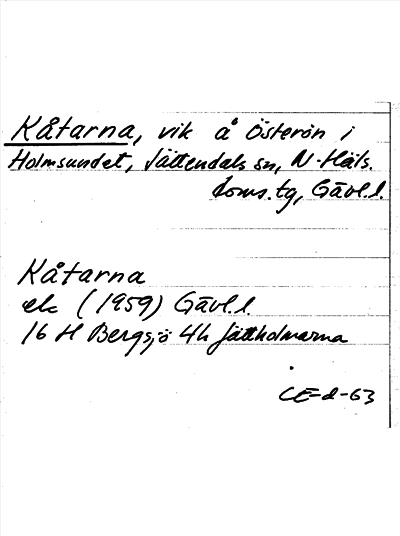 Kåtarna, vik å Österön i
Holmsundet, Jättendals sn, N. Häls.
doms. tg, Gävl. l.
Kåtarna
ek (1959) Gävl. l.
16 H Bergsjö 4h Jättholmarna
CE-d-63